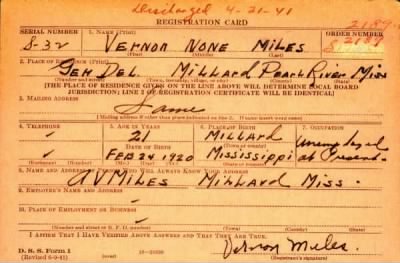 Discharged 4-21-41
REGISTRATION CARD
SERIAL NUMBER 1. NAME (Print) ORDER NUMBER
S-32 VERNON NONE MILES
(First) (Middle) (Last)
2. PLACE OF RESIDENCE (Print)
Gen Del. Millard Pearl River Miss
(Number and street) (Town, township, village, or city) (County) (State)
[THE PLACE OF RESIDENCE GIVEN ON THE LINE ABOVE WILL DETERMINE LOCAL BOARD
JURISDICTION; LINE 2 OF REGISTRATION CERTIFICATE WILL BE IDENTICAL]
3. MAILING ADDRESS
Same
[Mailing address if other than place indicated on line 2. If same insert word same]
4. TELEPHONE 5. AGE IN YEARS 6. PLACE OF BIRTH 7. OCCUPATION
21 Millard Unemployed
DATE OF BIRTH (Town or county)
FEB 24 1920 Mississippi at Present
(Exchange) (Number) (Mo.) (Day) (Yr.) (State or country)
8. NAME AND ADDRESS OF PERSON WHO WILL ALWAYS KNOW YOUR ADDRESS
MILES Millard Miss.
9. EMPLOYER'S NAME AND ADDRESS
10. PLACE OF EMPLOYMENT OR BUSINESS
(Number and street or R. F. D. number) (Town) (County) (State)
I AFFIRM THAT I HAVE VERIFIED ABOVE ANSWERS AND THAT THEY ARE TRUE.
D. S. S. Form 1
(Revised 6-9-41) (over) Vernon Miles
(Registrant's signature)